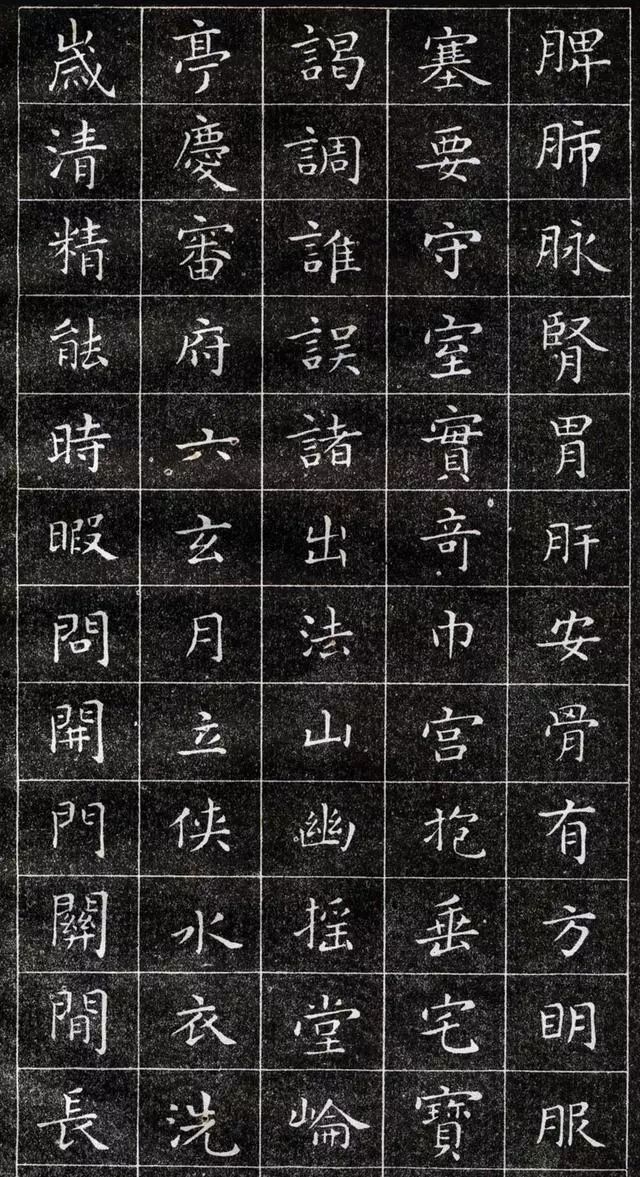 脾肺脉腎胃肝安骨有方明服
塞要守室實奇巾宫抱垂宅寶
謁調誰誤諸出法山幽摇堂崘
亭慶審府六玄月立俠水衣洗
歳清精能時暇問開門關閒長